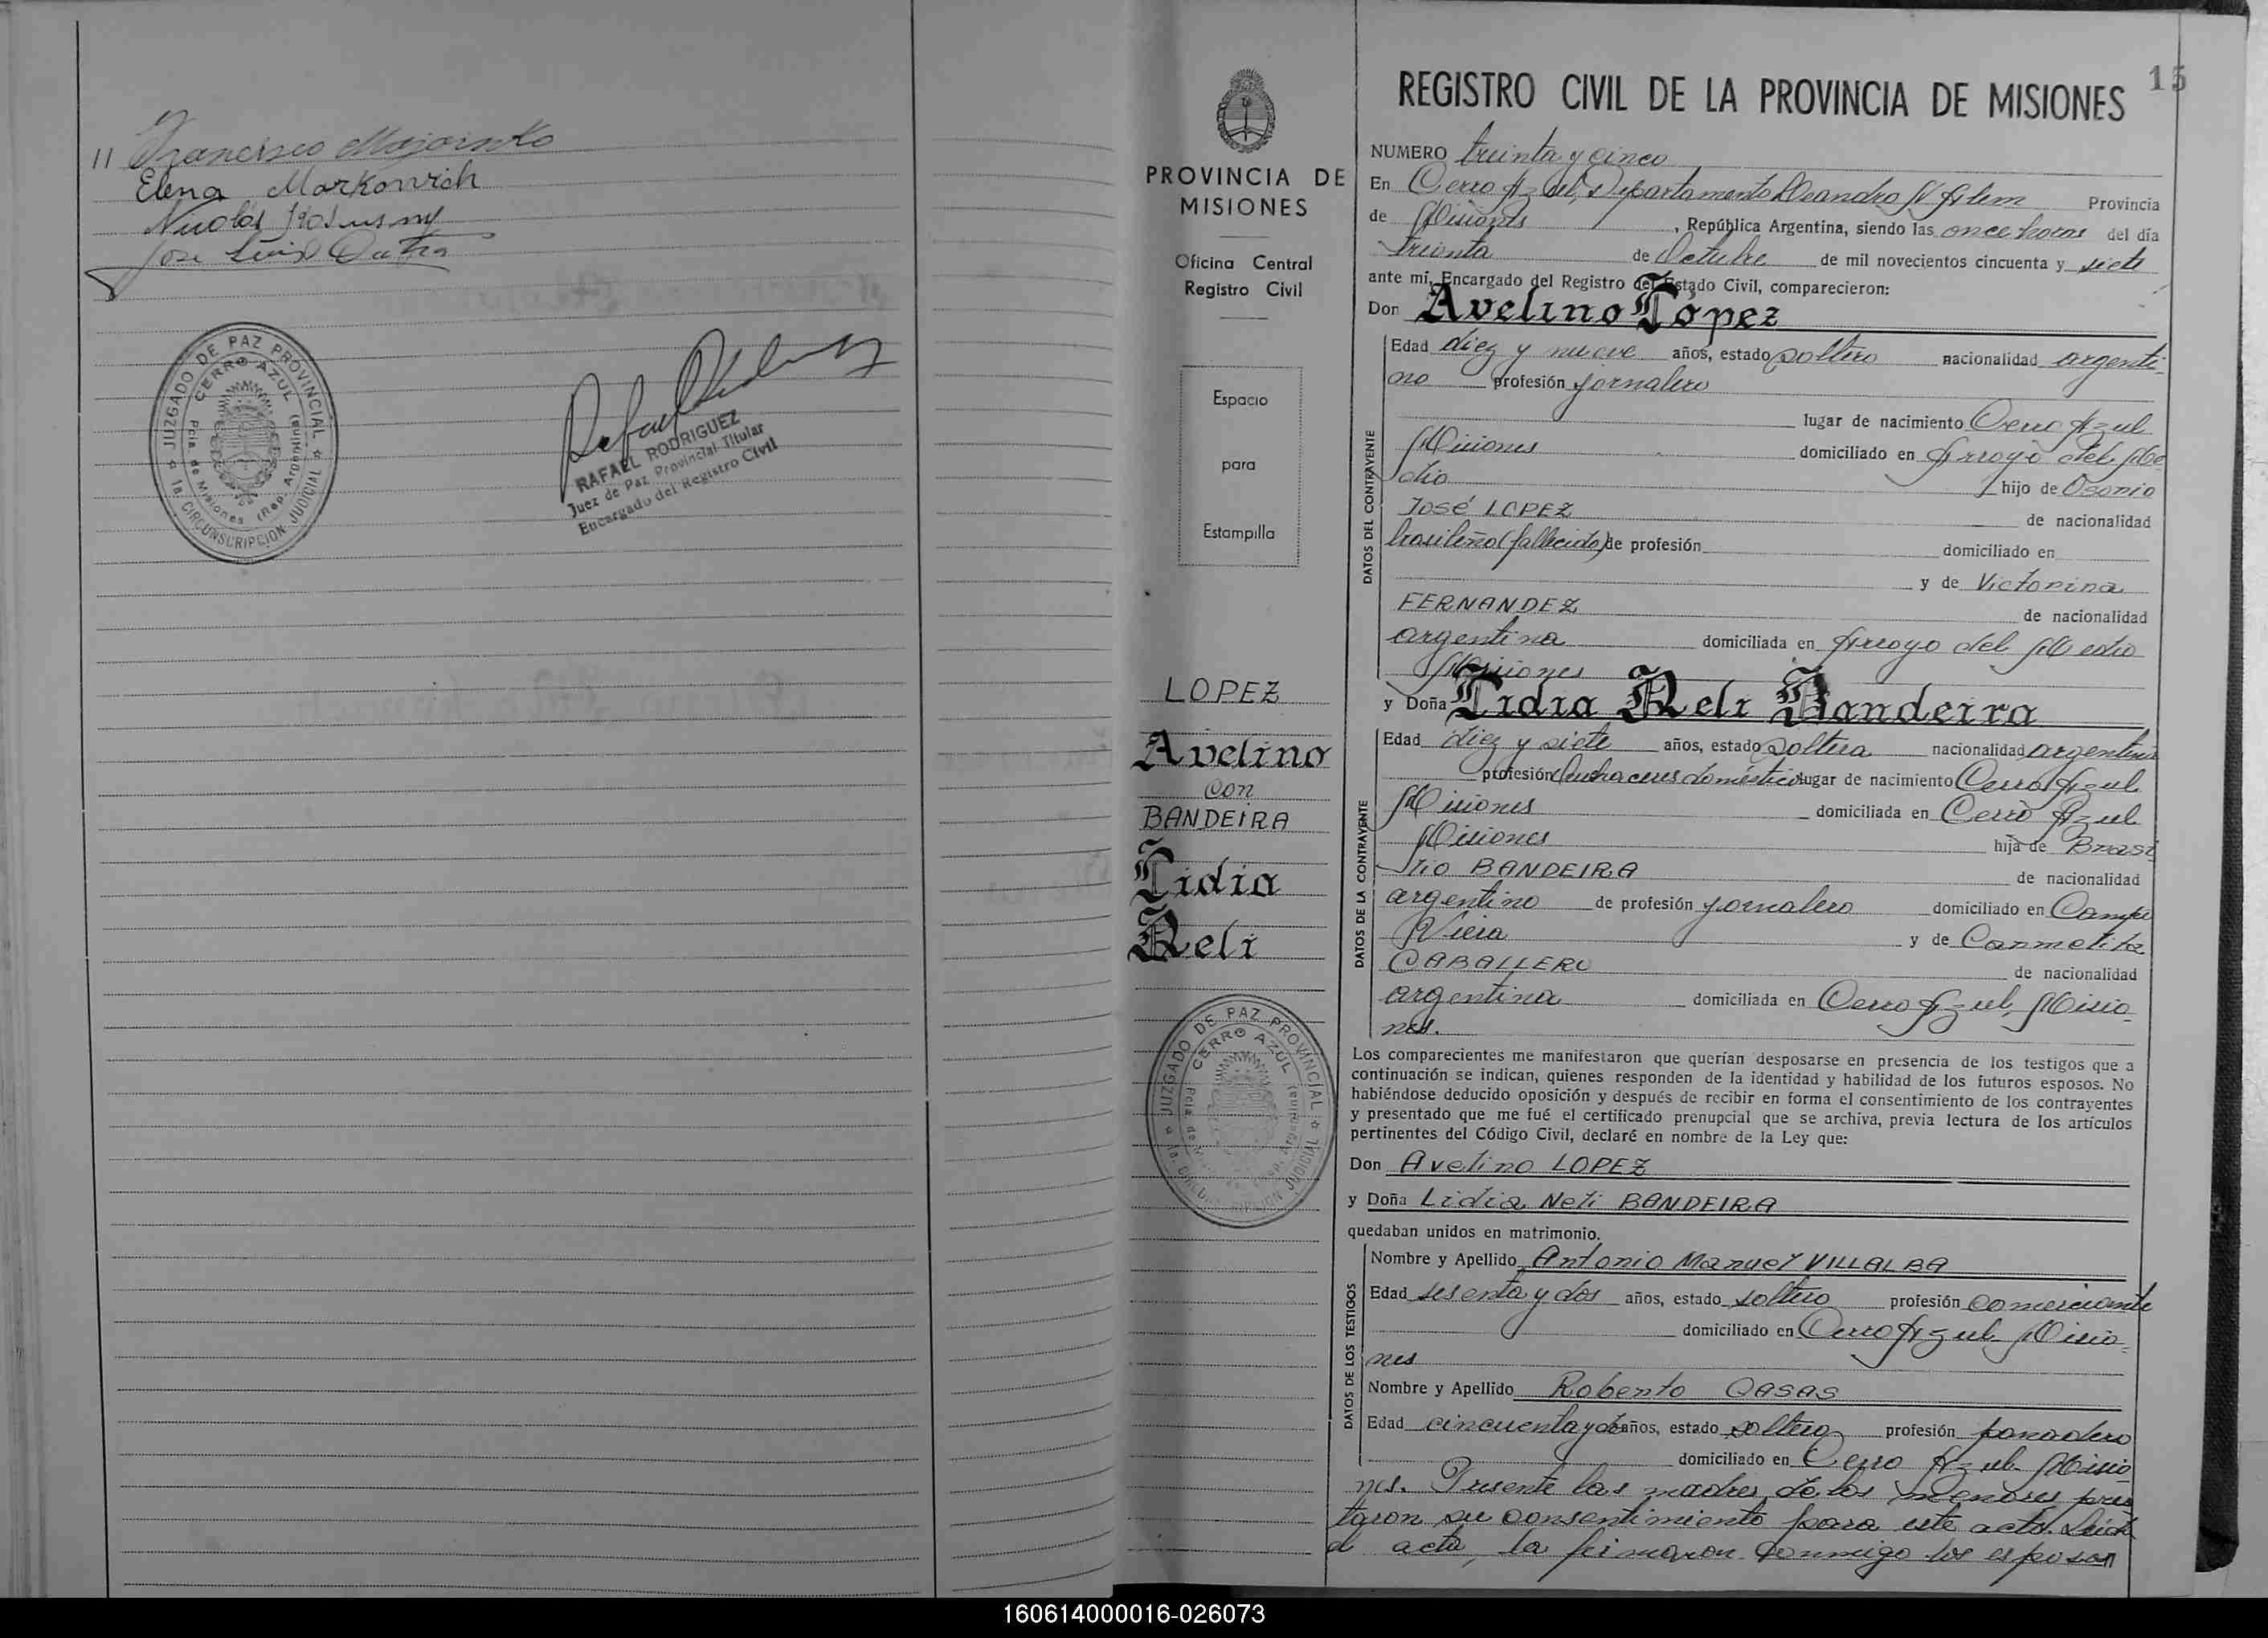 11 Francisco
Elena Markowich
Nicolás
José Luis Dutra
JUZGADO DE PAZ PROVINCIAL
CERRO AZUL
Pcia. de Misiones (Rep. Argentina)
1a. CIRCUNSCRIPCION JUDICIAL
RAFAEL RODRIGUEZ
Juez de Paz Provincial Titular
Encargado del Registro Civil
PROVINCIA DE
MISIONES
Oficina Central
Registro Civil
Espacio
para
Estampilla
LOPEZ
Avelino
con
BANDEIRA
Lidia
Neli
JUZGADO DE PAZ PROVINCIAL
CERRO AZUL
JUDICIAL
15
REGISTRO CIVIL DE LA PROVINCIA DE MISIONES
NUMERO treinta y cinco
En Cerro Azul, Departamento Leandro N Alem Provincia
de Misiones, República Argentina, siendo las once horas del día
treinta de Octubre de mil novecientos cincuenta y siete
ante mí, Encargado del Registro del Estado Civil, comparecieron:
Don Avelino López
DATOS DEL CONTRAYENTE
Edad diez y nueve años, estado soltero nacionalidad argenti-
no profesión jornalero
lugar de nacimiento Cerro Azul
Misiones domiciliado en Arroyo del Me
dio hijo de Osorio
José LOPEZ de nacionalidad
brasileño (fallecido) de profesión domiciliado en
y de Victorina
FERNANDEZ de nacionalidad
argentina domiciliada en Arroyo del Medio
Misiones
y Doña Lidia Neli Bandeira
DATOS DE LA CONTRAYENTE
Edad diez y siete años, estado soltera nacionalidad argentina
profesión quehaceres domésticos lugar de nacimiento Cerro Azul
Misiones domiciliada en Cerro Azul
Misiones hija de Brasi
lio BANDEIRA de nacionalidad
argentino de profesión jornalero domiciliado en Campo
Viera y de Carmelita
CABALLERO de nacionalidad
argentina domiciliada en Cerro Azul, Misio-
nes.
Los comparecientes me manifestaron que querían desposarse en presencia de los testigos que a
continuación se indican, quienes responden de la identidad y habilidad de los futuros esposos. No
habiéndose deducido oposición y después de recibir en forma el consentimiento de los contrayentes
y presentado que me fué el certificado prenupcial que se archiva, previa lectura de los artículos
pertinentes del Código Civil, declaré en nombre de la Ley que:
Don Avelino LOPEZ
y Doña Lidia Neli BANDEIRA
quedaban unidos en matrimonio.
DATOS DE LOS TESTIGOS
Nombre y Apellido Antonio Manuel VILLALBA
Edad sesenta y dos años, estado soltero profesión comerciante
domiciliado en Cerro Azul Misio-
nes
Nombre y Apellido Roberto CASAS
Edad cincuenta y dos años, estado soltero profesión panadero
domiciliado en Cerro Azul Misio
nes. Presente las madres de los menores pres
taron su consentimiento para este acto. Leída
el acta, la firmaron conmigo los esposos
160614000016-026073